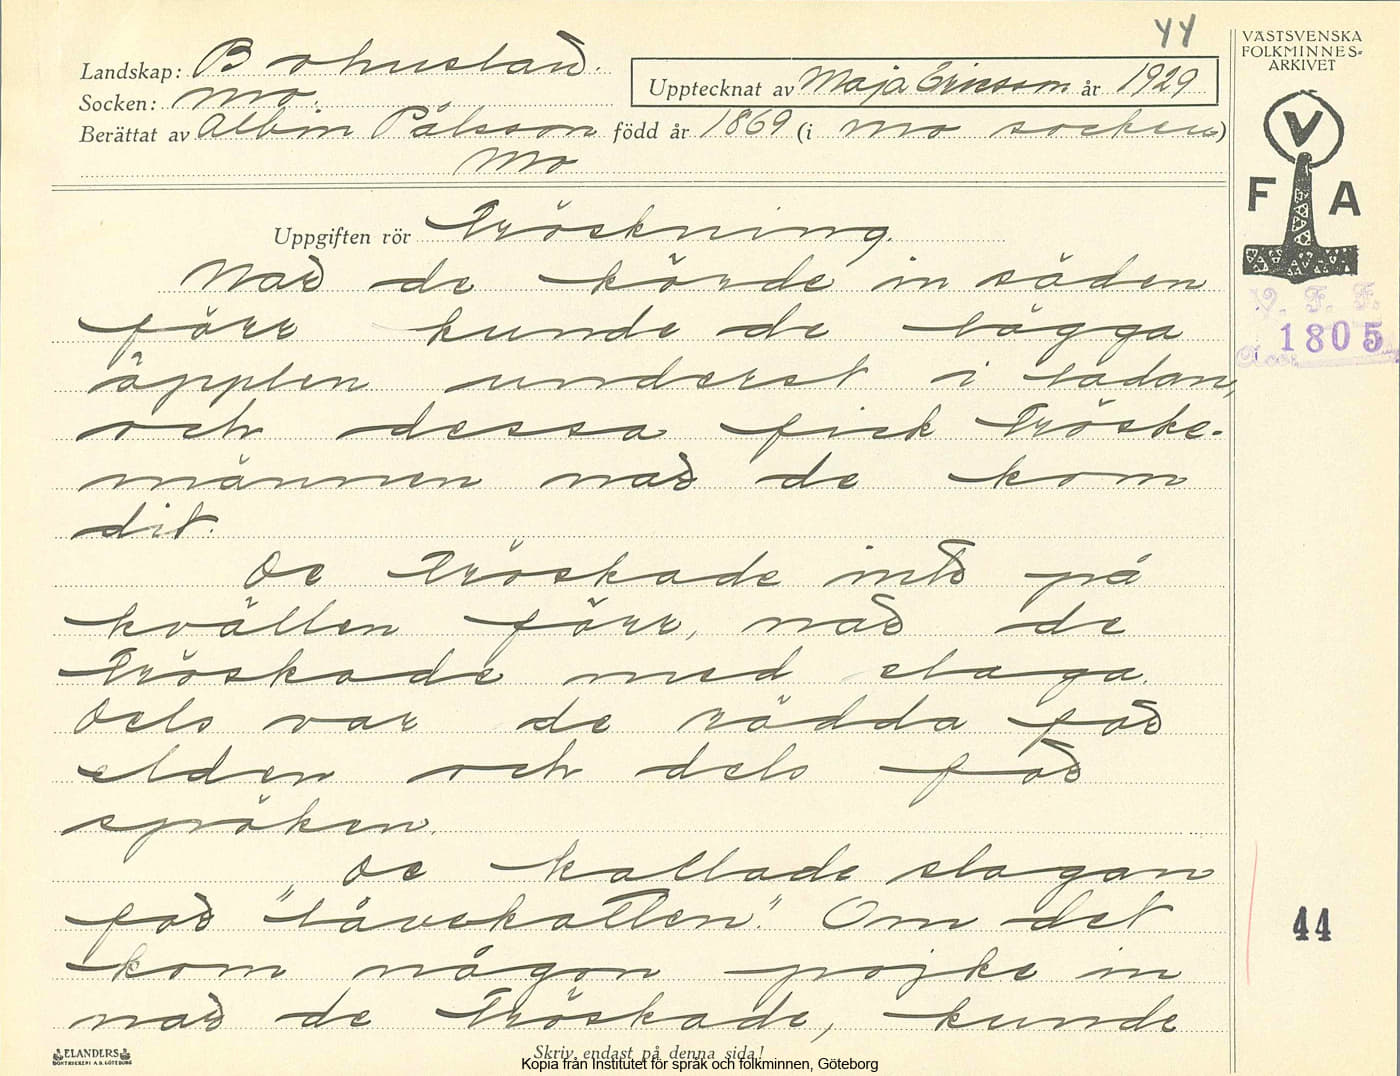 44
Landskap: Bohuslän.
Socken: Mo.
Upptecknat av Maja Ericsson år 1929
Berättat av Albin Pålsson född år 1869 (i Mo socken)
Mo
Uppgiften rör Tröskning.
När de körde in säden
förr kunde de lägga
äpplen underst i ladan,
och dessa fick tröske-
männen när de kom
dit.
De tröskade inte på
kvällen förr, när de
tröskade med slaga.
Dels var de rädda för
elden och dels för
spöken.
De kallade slagan
för "låvekatten". Om det
kom någon pojke in
när de tröskade, kunde
Skriv endast på denna sida!
ELANDERS
BOKTRYCKERI A.B. GÖTEBORG
VÄSTSVENSKA
FOLKMINNES-
ARKIVET
V
F A
V. F. F.
1805
Acc.
44
Kopia från Institutet för språk och folkminnen, Göteborg